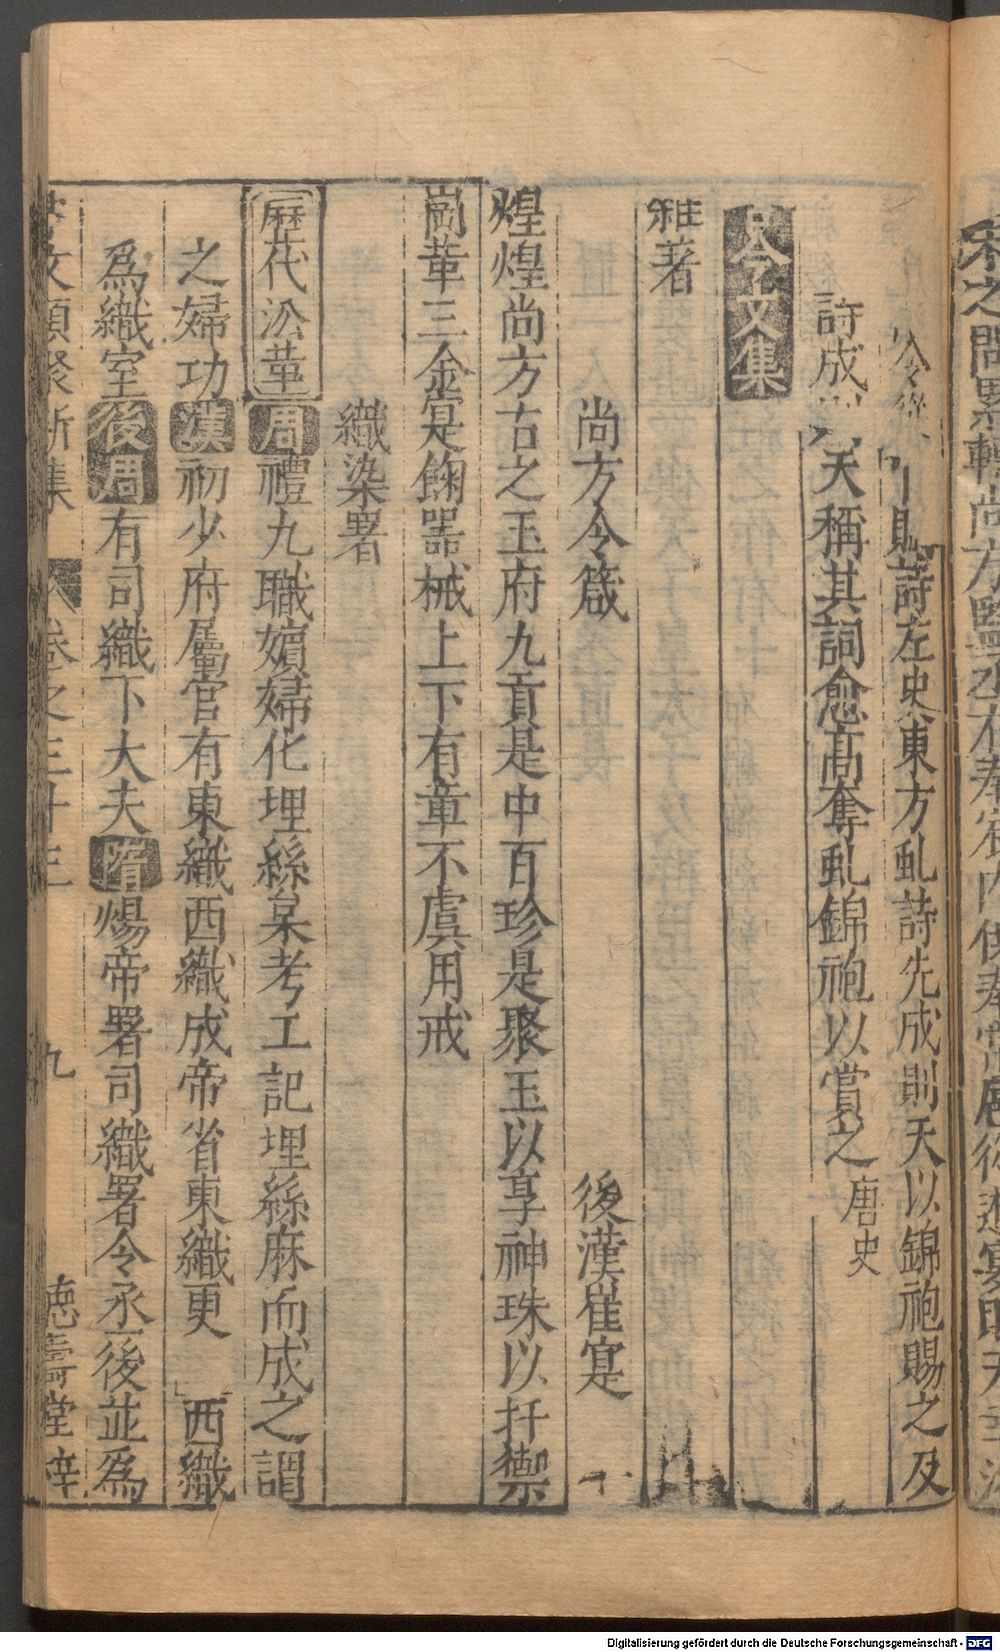 則詩左史東方虬詩先成則天以錦袍賜之及
詩成 天稱其詞愈高奪虬錦袍以賞之 唐史
古今文集
雜著
尚方令箴 後漢崔寔
煌煌尚方古之玉府九貢是中百珍是聚玉以享神珠以扞禦
崗華三金寔餉噐械上下有章不虞用戒
織染署
歷代㳂革 周禮九職嬪婦化埋絲枲考工記埋絲麻而成之謂
之婦功 漢初少府屬官有東織西織成帝省東織更 西織
為織室 後周有司織下大夫 隋煬帝署司織署令丞後並為
文類聚新集 卷之三十三 九 德壽堂梓
之問 轉尚方監丞